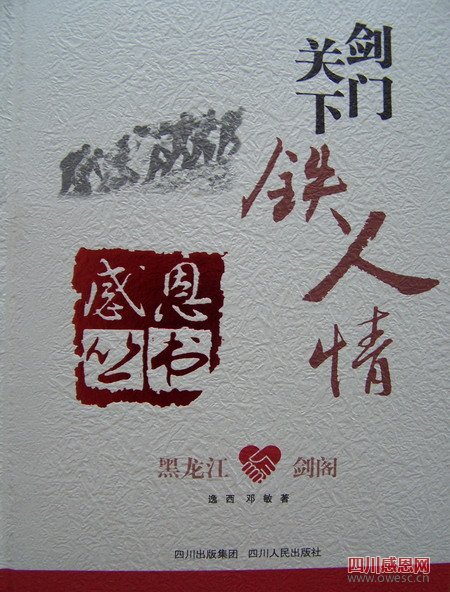 剑门
关下
铁人情
感恩
丛书
黑龙江 剑阁
逸西 邓敏 著
四川出版集团 四川人民出版社
四川感恩网
www.owesc.cn